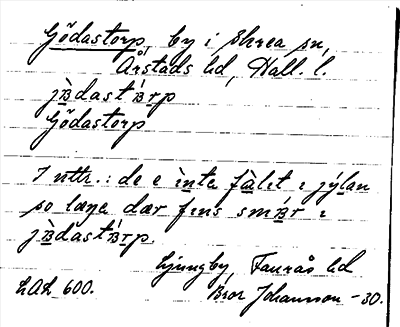 Gödastorp, by i Skrea sn,
Årstads hd, Hall. l.
jödastorp
Gödastorp
I uttr.: de e inte falit i jylan
so laŋe dær fins smör i
jödastorp.
Ljungby, Faurås hd
LAL 600. Bror Johansson -30.